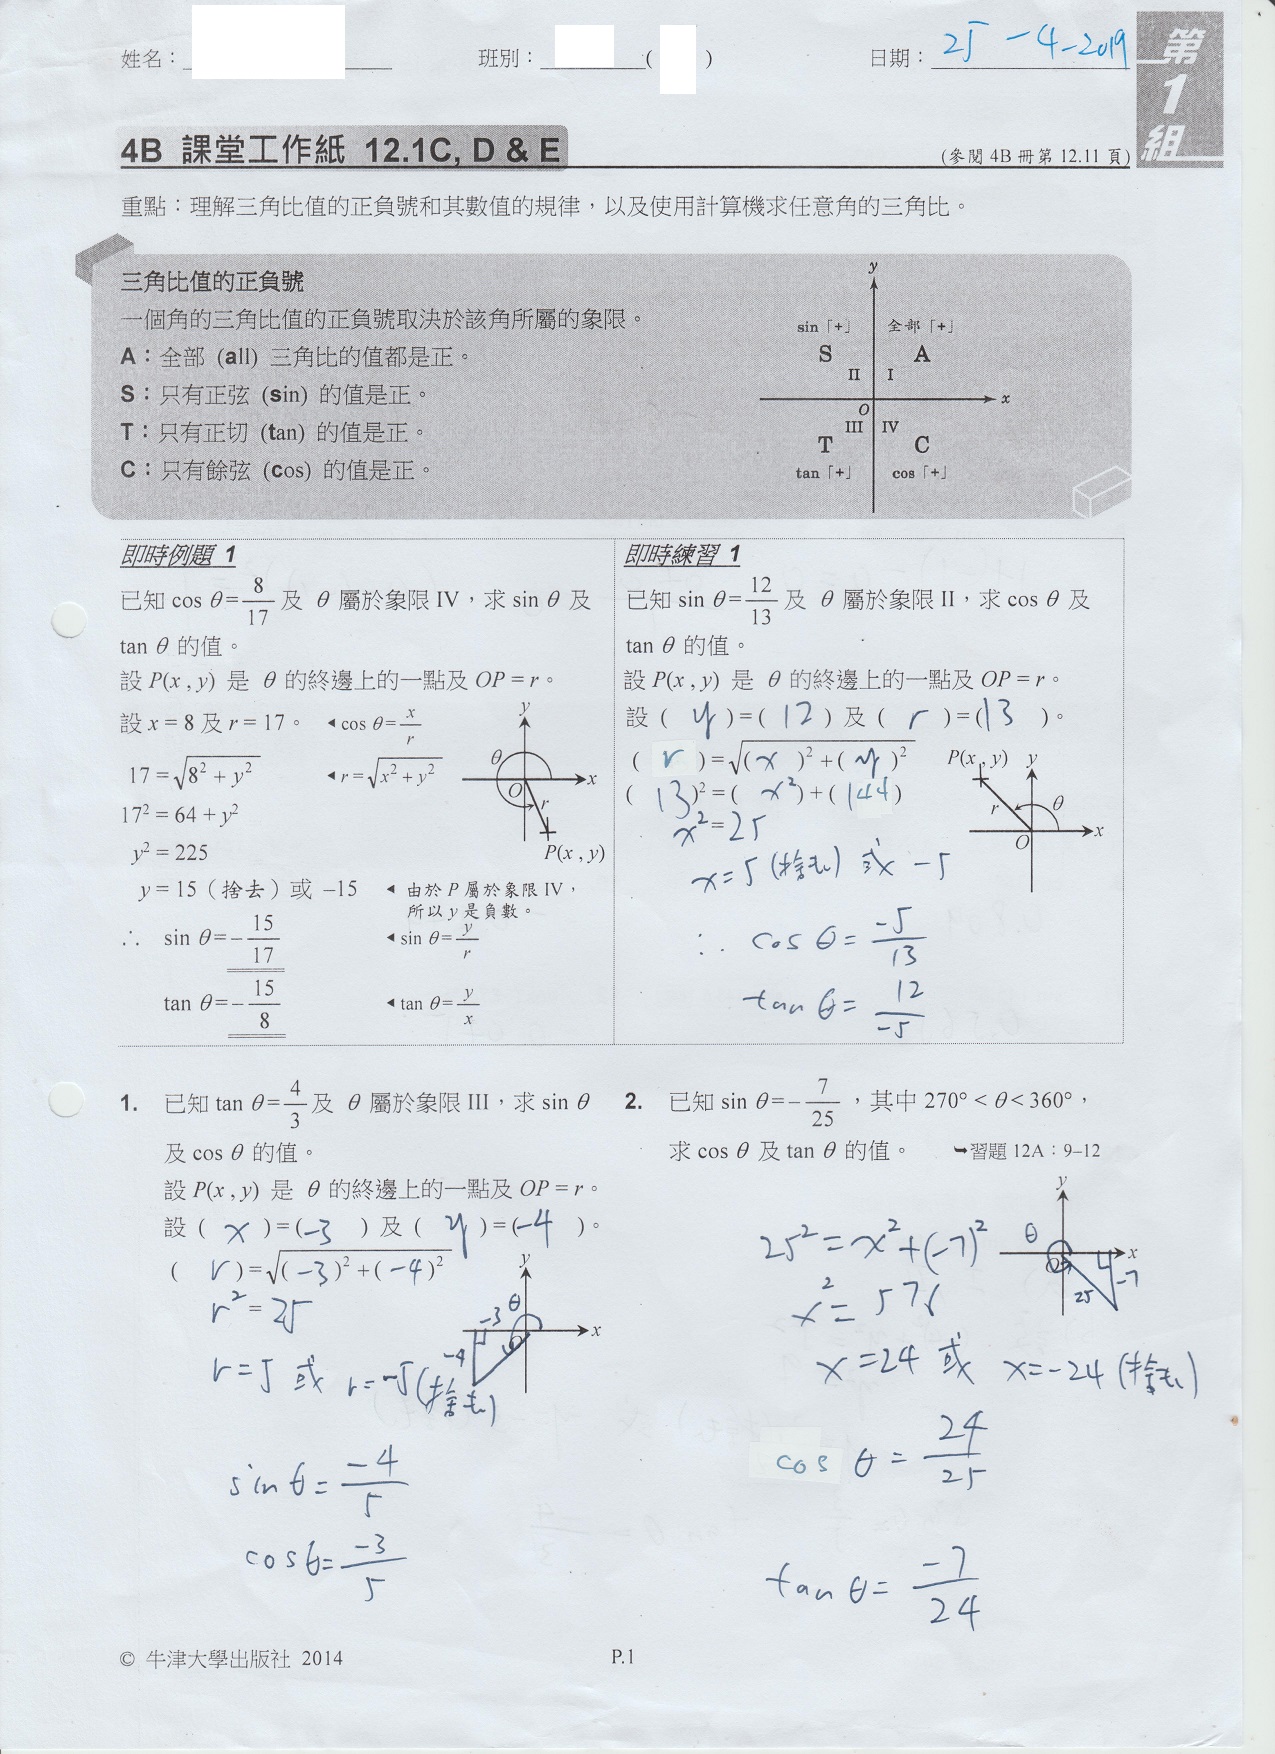 姓名： 班別： ( ) 日期： 25-4-2019
第1組
4B 課堂工作紙 12.1C, D & E (參閱 4B 冊第 12.11 頁)
重點：理解三角比值的正負號和其數值的規律，以及使用計算機求任意角的三角比。
三角比值的正負號
一個角的三角比值的正負號取決於該角所屬的象限。
A：全部 (all) 三角比的值都是正。
S：只有正弦 (sin) 的值是正。
T：只有正切 (tan) 的值是正。
C：只有餘弦 (cos) 的值是正
y
sin「+」 全部「+」
S A
II I
O x
III IV
T C
tan「+」 cos「+」
即時例題 1
已知 cos θ = 8/17 及 θ 屬於象限 IV，求 sin θ 及
tan θ 的值。
設 P(x , y) 是 θ 的終邊上的一點及 OP = r。
設 x = 8 及 r = 17。 ◂ cos θ = x/r
17 = √(8² + y²) ◂ r = √(x² + y²)
17² = 64 + y²
y² = 225
y = 15（捨去）或 –15 ◂ 由於 P 屬於象限 IV，
所以 y 是負數。
∴ sin θ = – 15/17 ◂ sin θ = y/r
tan θ = – 15/8 ◂ tan θ = y/x
y
θ
O x
r
P(x , y)
即時練習 1
已知 sin θ = 12/13 及 θ 屬於象限 II，求 cos θ 及
tan θ 的值。
設 P(x , y) 是 θ 的終邊上的一點及 OP = r。
設 ( y ) = ( 12 ) 及 ( r ) = (13 )。
( r ) = √(( x )² + ( y )²)
( 13 )² = ( x² ) + ( 144 )
x² = 25
x = 5 (捨去) 或 -5
∴ cos θ = -5/13
tan θ = 12/-5
P(x , y) y
r θ
O x
1. 已知 tan θ = 4/3 及 θ 屬於象限 III，求 sin θ
及 cos θ 的值。
設 P(x , y) 是 θ 的終邊上的一點及 OP = r。
設 ( x ) = (-3 ) 及 ( y ) = (-4 )。
( r ) = √(( -3 )² + ( -4 )²)
r² = 25
r = 5 或 r = -5 (捨去)
sin θ = -4/5
cos θ = -3/5
y
θ
-3
x
-4
O
2. 已知 sin θ = – 7/25，其中 270° < θ < 360°，
求 cos θ 及 tan θ 的值。 ➥習題 12A：9–12
25² = x² + (-7)²
x² = 576
x = 24 或 x = -24 (捨去)
cos θ = 24/25
tan θ = -7/24
y
θ
O x
25 -7
© 牛津大學出版社 2014 P.1